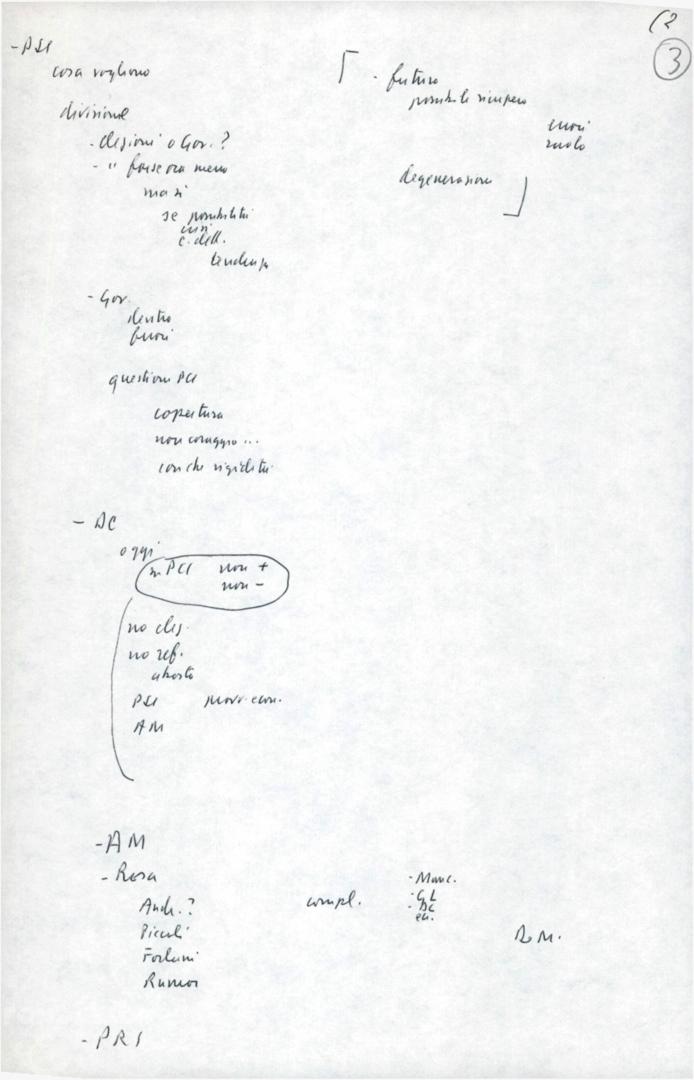 (2
3
- PSI
cosa vogliono
divisione
- elezioni o Gov. ?
- " forse ora meno
ma si
se possibilità
crisi
c. dell.
tendenza
- Gov.
dentro
fuori
questione PCI
copertura
non coraggio ...
con che rigidità
- futuro
possibile recupero
errori
ruolo
degenerazione
- DC
oggi
su PCI non +
non -
no elez.
no ref.
aborto
PSI
AM
- AM
- Rosa
Andr. ?
Piccoli
Forlani
Rumor
compl.
- Manc.
- GL
- DC
ecc.
R. M.
- PRI